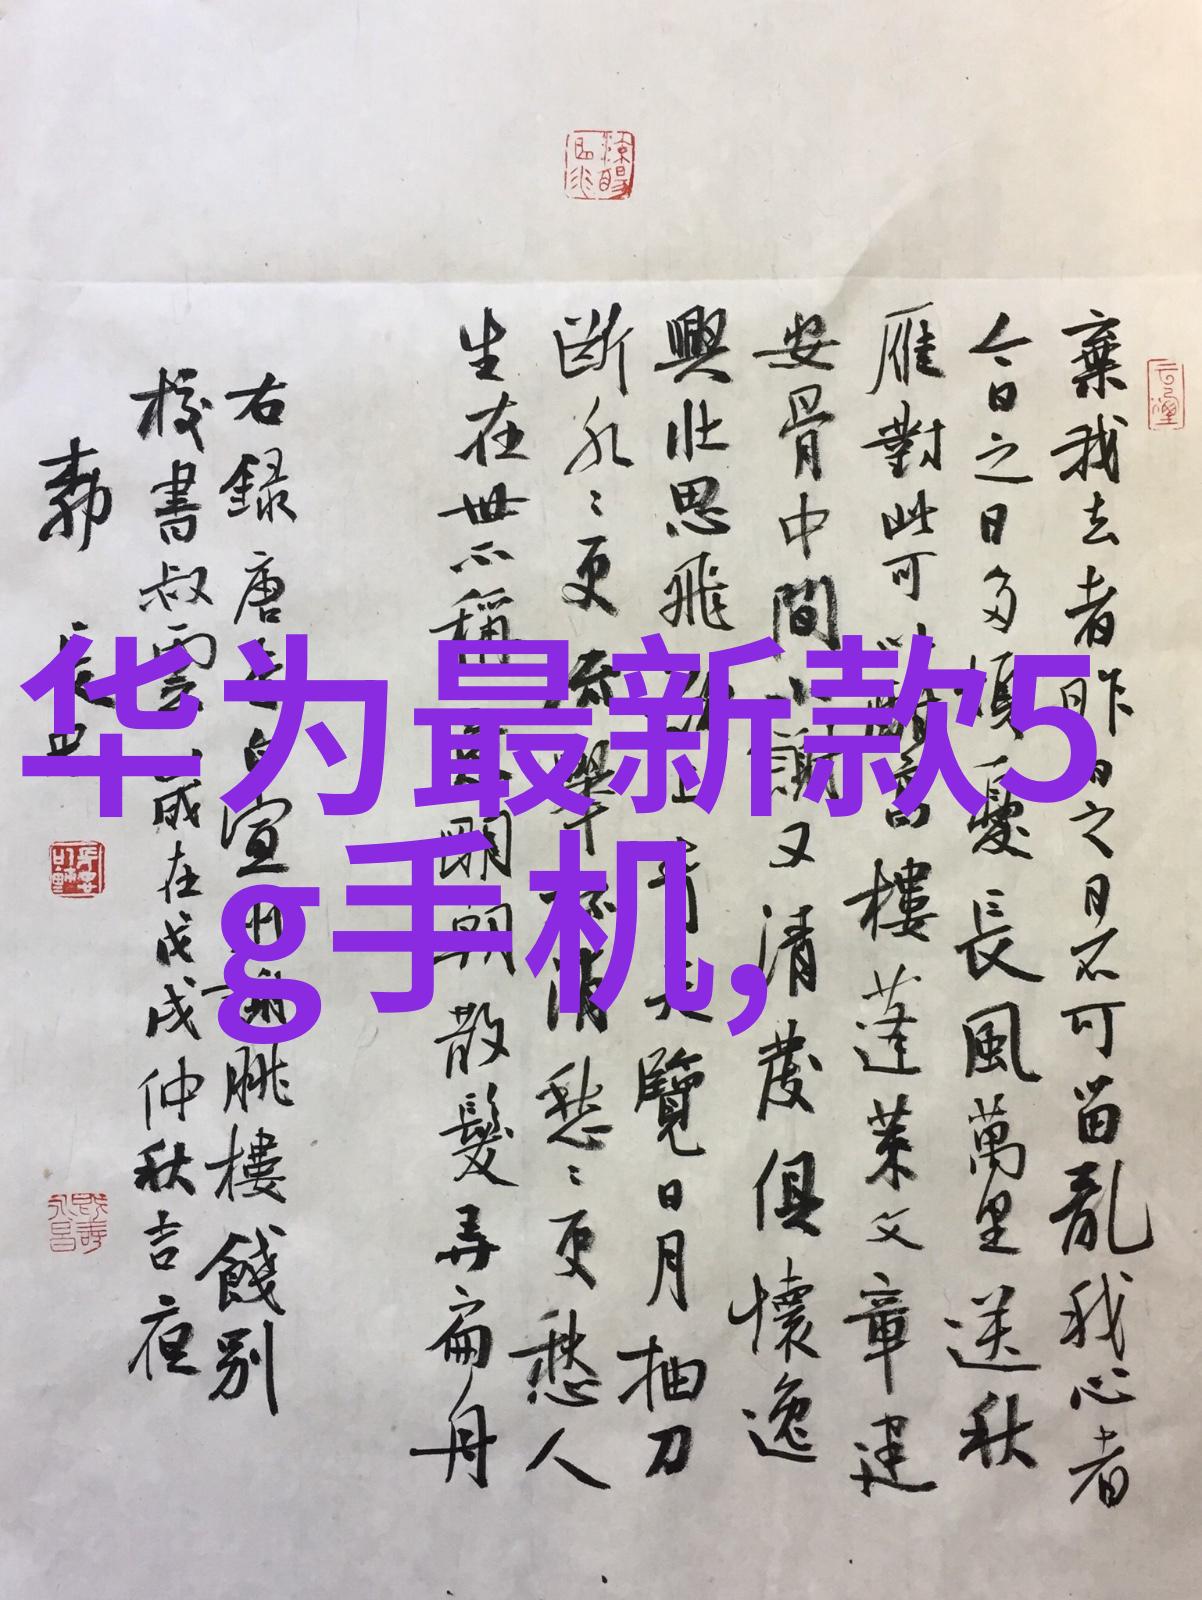 华为最新款5
g手机,
棄我去者昨日之日不可留亂我心者
今日之日多煩憂長風萬里送秋
雁對此可以酣高樓蓬萊文章建
安骨中間小謝又清發俱懷逸
興壯思飛欲上青天覽日月抽刀
斷水〻更流舉杯消愁〻更愁人
生在世不稱意明朝散髮弄扁舟
右録唐李白宣州謝朓樓餞別
校書叔雲歲在戊戌仲秋吉夜